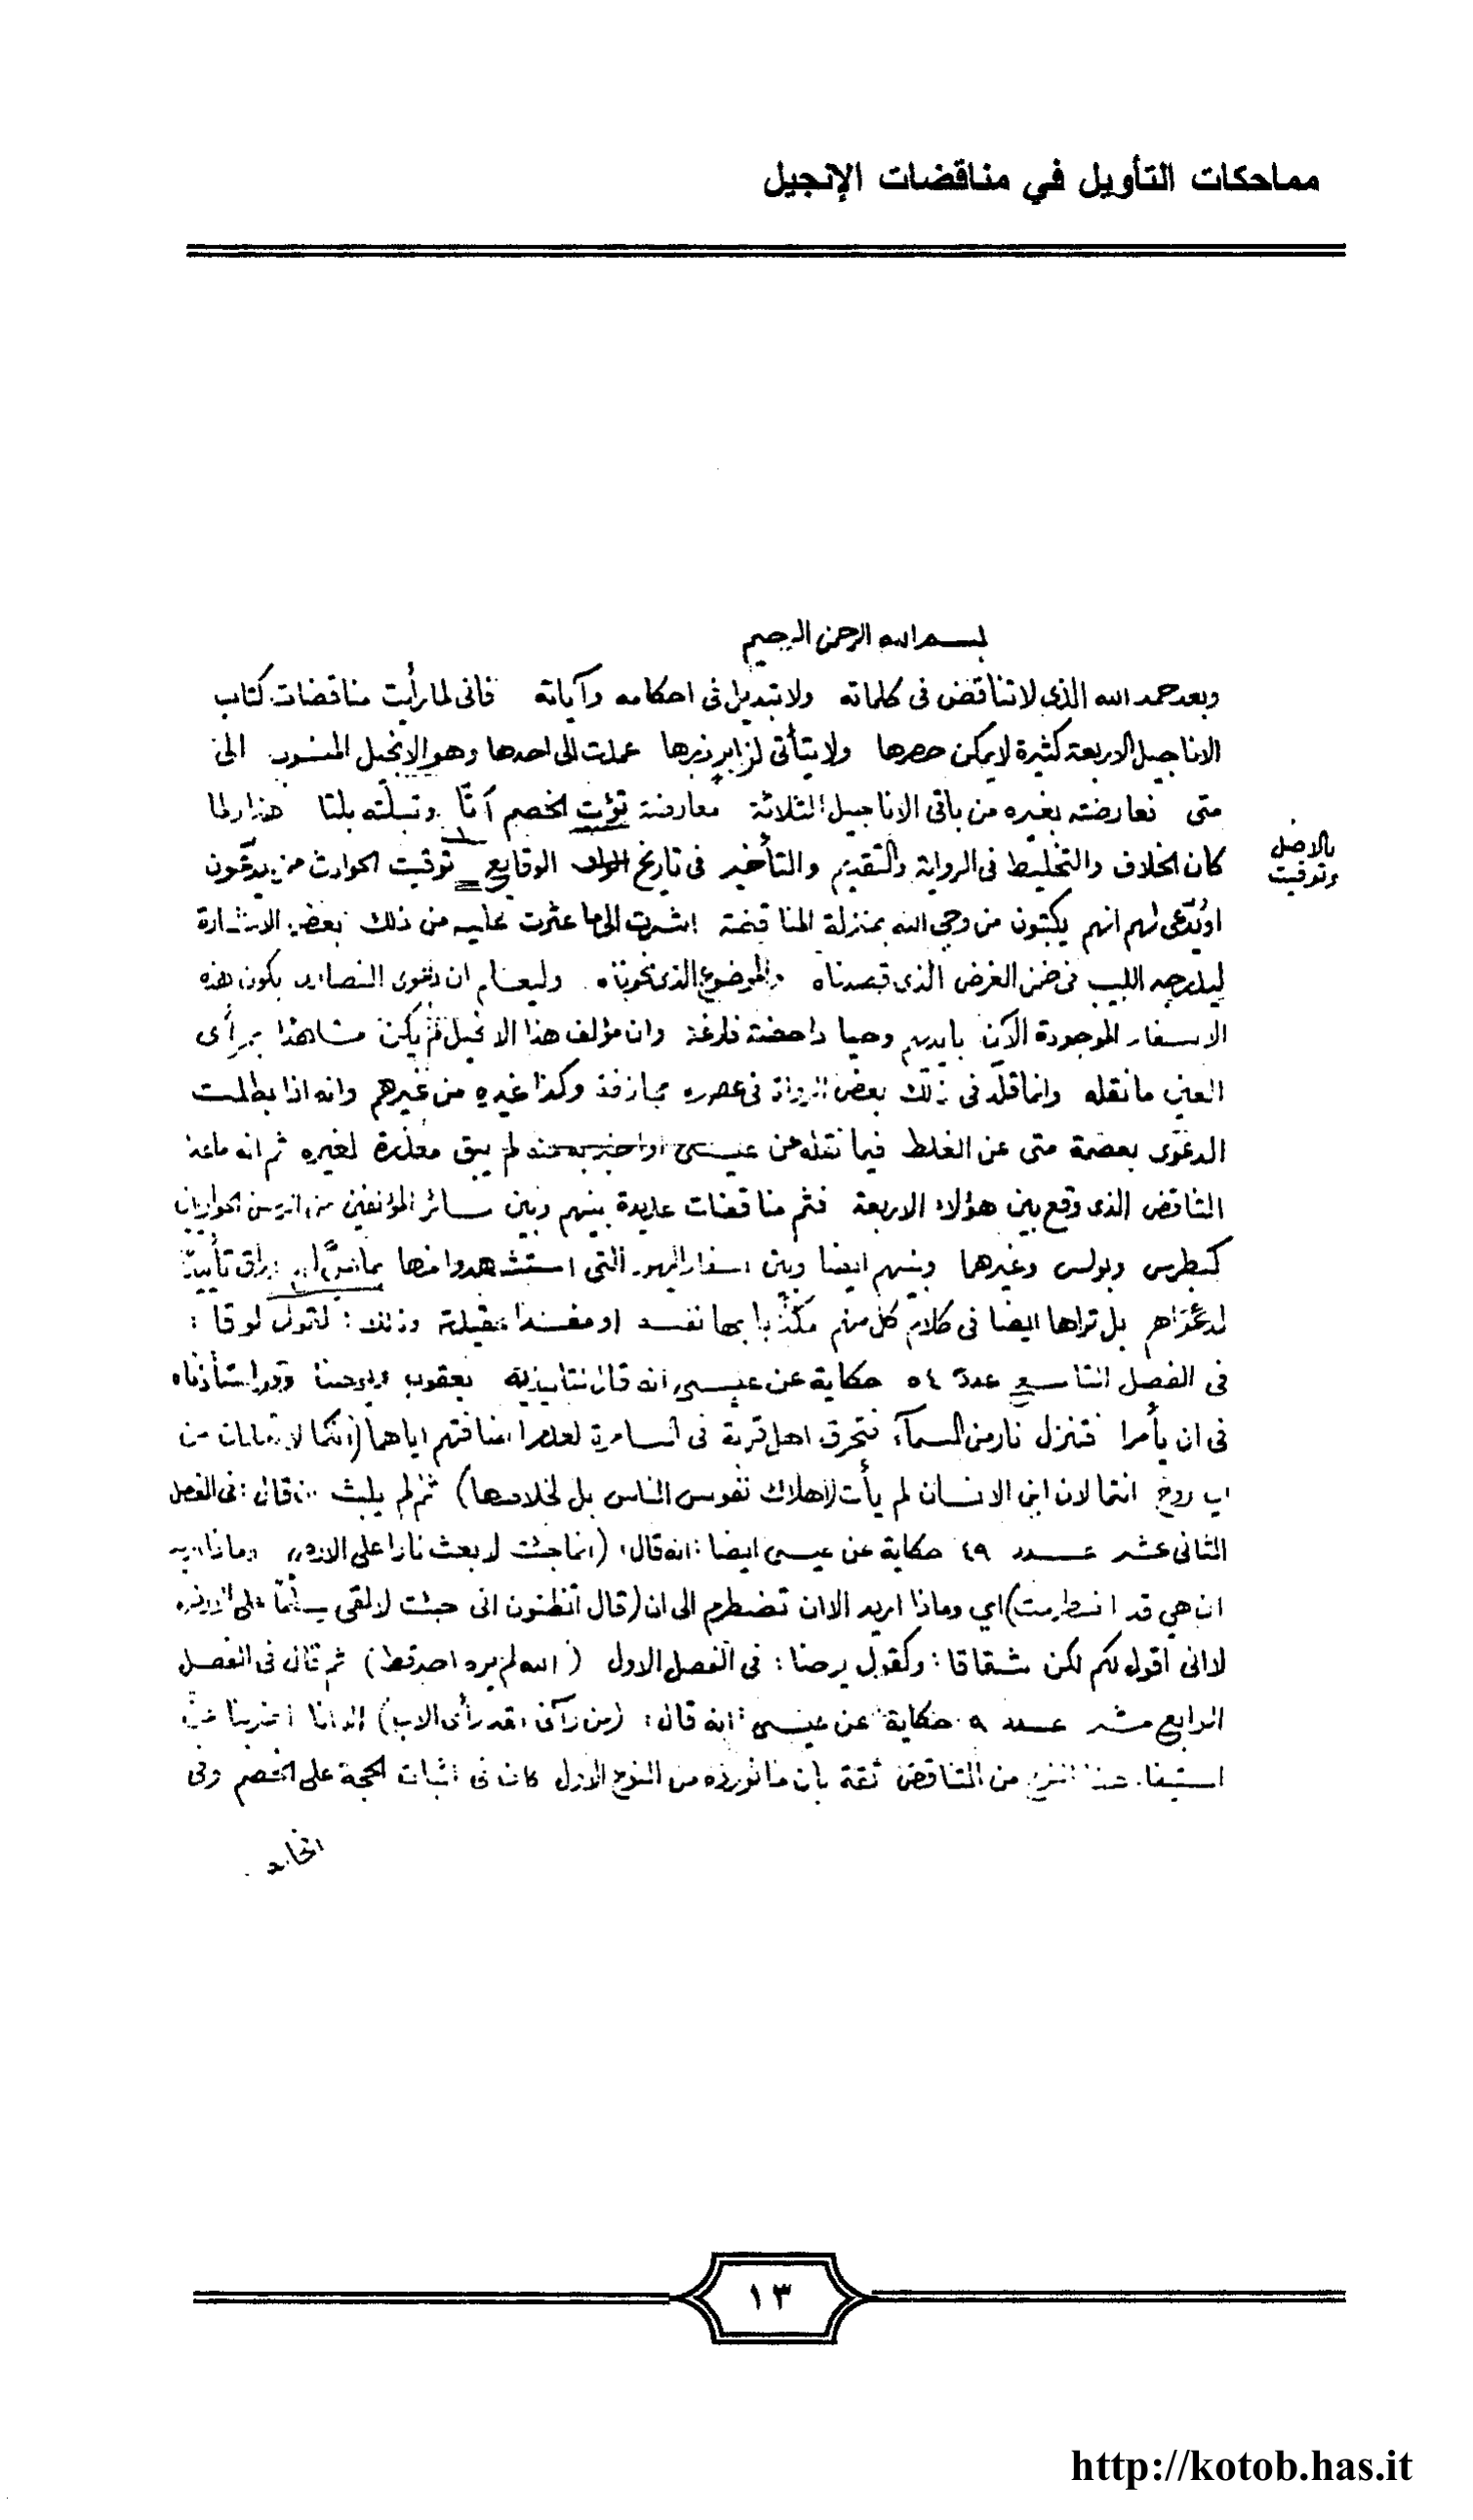 مماحكات التأويل في مناقضات الإنجيل
بسم الله الرحمن الرحيم
وبعد حمد الله الذي لا تناقض فى كلماته ولا تبديل فى احكامه وآياته فانى لما رأيت مناقضات كتاب
الاناجيل الاربعة كثيرة لا يمكن حصرها ولا يتأتى لزابر زبرها عمدت الى احدها وهو الانجيل المنسوب الى
متى فعارضته بغيره من باقى الاناجيل الثلاثة معارضة الخصم ولما
كان الخلاف والتخليط فى الرواية والتقديم والتأخير فى تاريخ الوقايع توقيت الحوادث ممن يدّعون
بالاصل
وتوقيت
او يُدّعى لهم انهم يكتبون من وحي الله بمنزلة المناقضة اشرت الى ما عثرت عليه من ذلك بعض الاشارة
ليدرجه اللبيب فى ضمن الغرض الذى قصدناه والموضوع الذى نحوناه وليعلم ان دعوى النصارى بكون هذه
الاسفار الموجودة الآن بايديهم وحيا داحضة فارغة وان مؤلف هذا الانجيل لم يكن مشاهدا بمرأى
العين ما نقله وانما قلّد فى ذلك بعض الرواة فى عصره مجازفة وكذا غيره من غيرهم وانه اذا بطلت
الدعوى بعصمة متى عن الغلط فيما نقله عن عيسى او اخبر به عنه لم يبق معذرة لغيره ثم انه ما عدا
التناقض الذى وقع بين هؤلاء الاربعة فثم مناقضات عديدة بينهم وبين سائر المؤلفين من الحواريين
كبطرس وبولس وغيرهما وبينهم ايضا وبين اسفار اليهود التى استشهدوا منها تأييدا
لدعواهم بل تراها ايضا فى كلام كل منهم مكذبا بها نفسه او مفسدا وذلك : كقول لوقا :
فى الفصل التاسع عدد ٥٤ حكاية عن عيسى انه قال لتلميذيه يعقوب ويوحنا وقد استأذناه
فى ان يأمرا فتنزل نار من السمآء فتحرق اهل قرية فى السامرة لعدم اضافتهم اياهما (انكما لا تعلمان من
اي روح انتما لان ابن الانسان لم يأت لاهلاك نفوس الناس بل لخلاصها) ثم لم يلبث ان قال : فى الفصل
الثانى عشر عدد ٤٩ حكاية عن عيسى ايضا : انه قال : (انما جئت لابعث نارا على الارض وماذا اريد
ان هي قد اضطرمت) اي وماذا اريد الا ان تضطرم الى ان (قال أتظنون انى جئت لالقى سلما على الارض
لا انى أقول لكم لكن شقاقا : وكقول يوحنا : فى الفصل الاول (الله لم يره احد قط) ثم قال فى الفصل
الرابع عشر عدد ٩ حكاية عن عيسى : انه قال : (من رآنى فقد رأى الاب) الا انا اضربنا عن
استيفاء هذا النوع من التناقض ثقة بان ما نورده من النوع الاول كاف فى اثبات الحجة على الخصم وفى
١٣
http://kotob.has.it